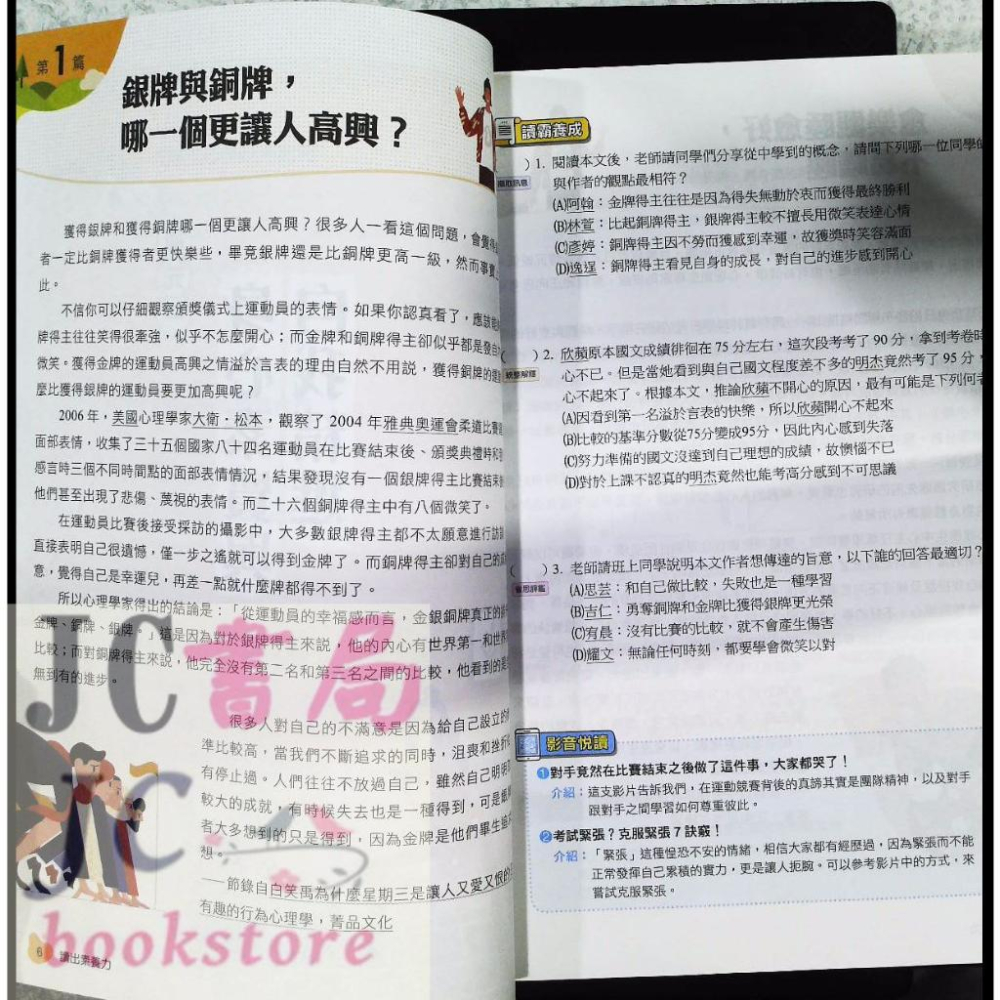 第1篇
銀牌與銅牌，
哪一個更讓人高興？
獲得銀牌和獲得銅牌哪一個更讓人高興？很多人一看這個問題，會覺得
者一定比銅牌獲得者更快樂些，畢竟銀牌還是比銅牌更高一級，然而事實
此。
不信你可以仔細觀察頒獎儀式上運動員的表情。如果你認真看了，應該
牌得主往往笑得很牽強，似乎不怎麼開心；而金牌和銅牌得主卻似乎都是發自
微笑。獲得金牌的運動員高興之情溢於言表的理由自然不用說，獲得銅牌的運動
麼比獲得銀牌的運動員要更加高興呢？
2006年，美國心理學家大衛・松本，觀察了2004年雅典奧運會柔道比賽
面部表情，收集了三十五個國家八十四名運動員在比賽結束後、頒獎典禮時和
感言時三個不同時間點的面部表情情況，結果發現沒有一個銀牌得主比賽結束
他們甚至出現了悲傷、蔑視的表情。而二十六個銅牌得主中有八個微笑了。
在運動員比賽後接受採訪的攝影中，大多數銀牌得主都不太願意進行訪
直接表明自己很遺憾，僅一步之遙就可以得到金牌了。而銅牌得主卻對自己的
意，覺得自己是幸運兒，再差一點就什麼牌都得不到了。
所以心理學家得出的結論是：「從運動員的幸福感而言，金銀銅牌真正的
金牌、銅牌、銀牌。」這是因為對於銀牌得主來說，他的內心有世界第一和世界
比較；而對銅牌得主來說，他完全沒有第二名和第三名之間的比較，他看到的是
無到有的進步。
很多人對自己的不滿意是因為給自己設立的
準比較高，當我們不斷追求的同時，沮喪和挫折
有停過。人們往往不放過自己，雖然自己明明
較大的成就，有時候失去也是一種得到，可是
者大多想到的只是得到，因為金牌是他們畢生追
想。
——節錄自白笑禹為什麼星期三是讓人又愛又恨的
有趣的行為心理學，菁品文化
6 讀出素養力
讀霸養成
( )1. 閱讀本文後，老師請同學們分享從中學到的概念，請問下列哪一位同學
擷取訊息
與作者的觀點最相符？
(A)阿翰：金牌得主往往是因為得失無動於衷而獲得最終勝利
(B)林萱：比起銅牌得主，銀牌得主較不擅長用微笑表達心情
(C)彥婷：銅牌得主因不勞而獲感到幸運，故獲獎時笑容滿面
(D)逸逞：銅牌得主看見自身的成長，對自己的進步感到開心
( )2. 欣蘋原本國文成績徘徊在75分左右，這次段考考了90分，拿到考卷時
統整解釋
心不已。但是當她看到與自己國文程度差不多的明杰竟然考了95分，
心不起來了。根據本文，推論欣蘋不開心的原因，最有可能是下列何
(A)因看到第一名溢於言表的快樂，所以欣蘋開心不起來
(B)比較的基準分數從75分變成95分，因此內心感到失落
(C)努力準備的國文沒達到自己理想的成績，故懊惱不已
(D)對於上課不認真的明杰竟然也能考高分感到不可思議
( )3. 老師請班上同學說明本文作者想傳達的旨意，以下誰的回答最適切？
省思評鑑
(A)思芸：和自己做比較，失敗也是一種學習
(B)吉仁：勇奪銅牌和金牌比獲得銀牌更光榮
(C)宥晨：沒有比賽的比較，就不會產生傷害
(D)耀文：無論任何時刻，都要學會微笑以對
影音悅讀
❶對手竟然在比賽結束之後做了這件事，大家都哭了！
介紹：這支影片告訴我們，在運動競賽背後的真諦其實是團隊精神，以及對手
跟對手之間學習如何尊重彼此。
❷考試緊張？克服緊張7訣竅！
介紹：「緊張」這種惶恐不安的情緒，相信大家都有經歷過，因為緊張而不能
正常發揮自己累積的實力，更是讓人扼腕。可以參考影片中的方式，來
嘗試克服緊張。
JC書局
JC
bookstore